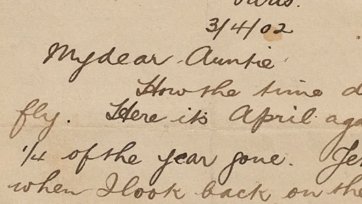 Paris.
3/4/02
My dear Auntie
How the time d
fly. Here its April aga
1/4 of the year gone.
when I look back on the